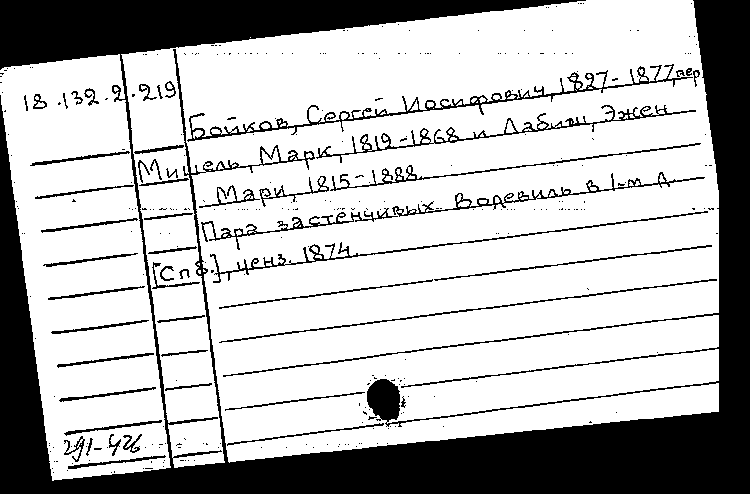 18.132.2.219
Бойков, Сергей Иосифович, 1827-1877, пер.
Мишель, Марк, 1812-1868 и Лабиш, Эжен
Мари, 1815-1888.
Пара застенчивых. Водевиль в 1-м д.
[Спб.], ценз. 1874.
291-426